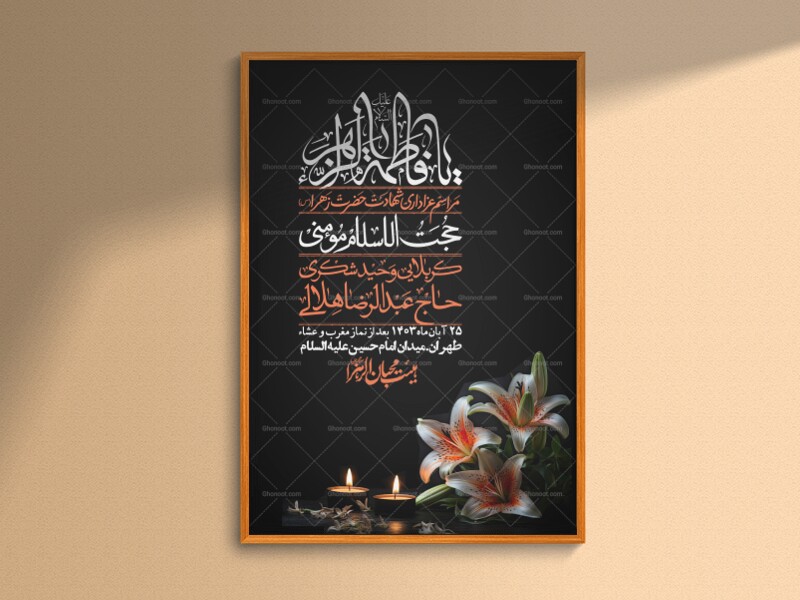 علیها السلام
یا فاطمة الزهراء
مراسم عزاداری شهادت حضرت زهرا (س)
حجت الاسلام مؤمنی
کربلایی وحید شکری
حاج عبدالرضا هلالی
۲۵ آبان ماه ۱۴۰۳ بعد از نماز مغرب و عشاء
طهران. میدان امام حسین علیه السلام
هیئت محبان الزهرا
Ghonoot.com